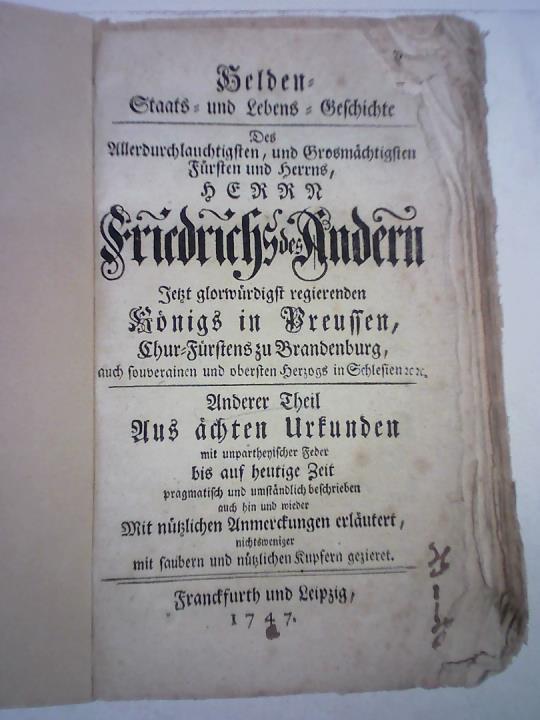 Helden-
Staats- und Lebens-Geschichte
Des
Allerdurchlauchtigsten, und Grosmächtigsten
Fürsten und Herrns,
HERRN
Friedrichs des Andern
Jetzt glorwürdigst regierenden
Königs in Preussen,
Chur-Fürstens zu Brandenburg,
auch souverainen und obersten Herzogs in Schlesien ꝛc. ꝛc.
Anderer Theil
Aus ächten Urkunden
mit unpartheyischer Feder
bis auf heutige Zeit
pragmatisch und umständlich beschrieben
auch hin und wieder
Mit nützlichen Anmerckungen erläutert,
nichtsweniger
mit saubern und nützlichen Kupfern gezieret.
Franckfurth und Leipzig,
1747.